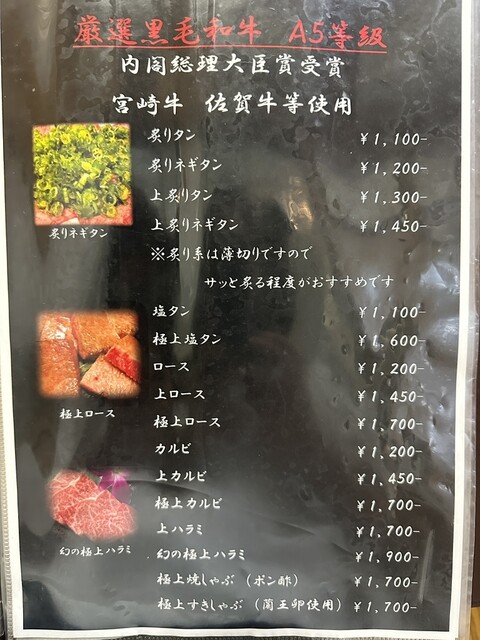 厳選黒毛和牛 A5等級
内閣総理大臣賞受賞
宮崎牛 佐賀牛等使用
炙りタン ¥1,100-
炙りネギタン ¥1,200-
上炙りタン ¥1,300-
上炙りネギタン ¥1,450-
炙りネギタン
※炙り系は薄切りですので
サッと炙る程度がおすすめです
塩タン ¥1,100-
極上塩タン ¥1,600-
ロース ¥1,200-
上ロース ¥1,450-
極上ロース ¥1,700-
極上ロース
カルビ ¥1,200-
上カルビ ¥1,450-
極上カルビ ¥1,700-
上ハラミ ¥1,700-
幻の極上ハラミ ¥1,900-
幻の極上ハラミ
極上焼しゃぶ（ポン酢） ¥1,700-
極上すきしゃぶ（蘭王卵使用） ¥1,700-